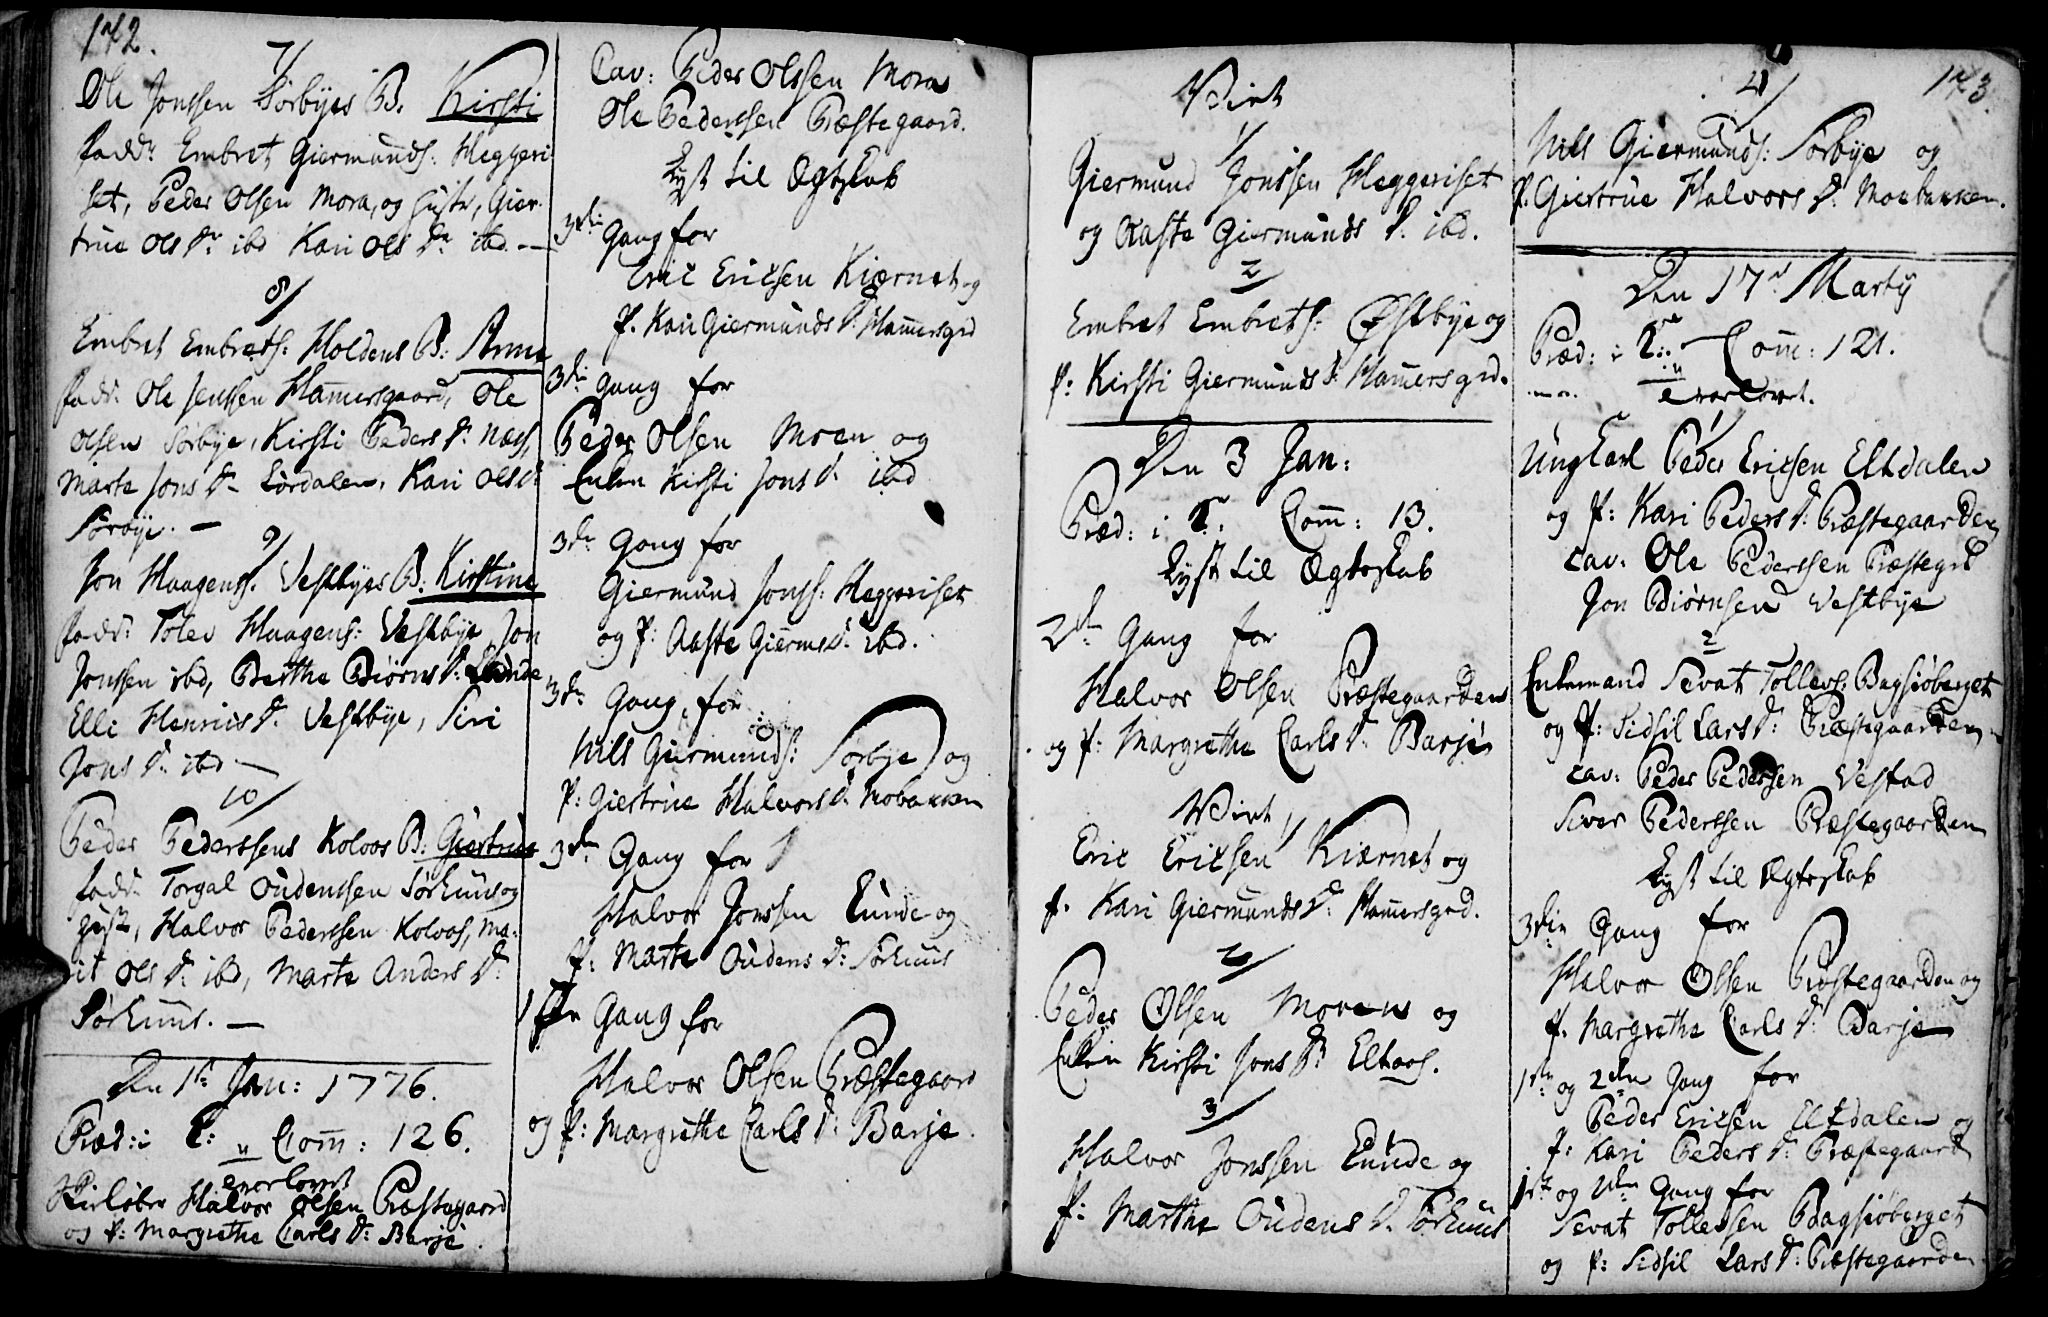 142.
7/
Ole Jonssen Sørbyes B. Kirsti
fadd: Embret Giermunds: Heggeri
set, Peder Olsen Mora, og hustr, Gier-
true Ols Dr ibd Kari Ols Dr ibd. —
8/
Embret Embrets: Holdens B: Anne
fadd: Ole Jenssen Hamersgaard, Ole
Olsen Sørbye, Kirsti Peders Dr Næss,
Marte Jons Dr Lørdalen, Kari Ols Dr
Sørbye. —
9/
Jon Haagens. Vestbyes B: Kirstine
fadd: Tolev Haagens: Vestbye, Jon
Jonssen ibd, Berthe Biørns Dr: Lunde
Elli Henrics Dr. Vestbye, Siri
Jons Dr. ibd —
10/
Peder Pederssens Kolos B: Giertrue
fadd: Torgal Oudenssen Sørhuus og
hust, Halvor Pederssen Kolos, Ma-
rit Ols Dr. ibd, Marte Anders Dr:
Sørhuus. —
Den 1te Jan: 1776.
Præd: i T: Com̄: 126.
Trolovet
Halvor Olsen Præstegaard
og P: Margrethe Carls Dr: Barje.
Cav: Peder Olssen Mora
Ole Pederssen Præstegaard.
Lyst til Ægteskab
3die Gang for
Eric Ericsen Kiærnet og
P. Kari Giermunds Dr: Ham̄ersgrd
3die Gang for
Peder Olsen Moen og
Enken Kirsti Jons Dr. ibd
3die Gang for
Giermund Jonss: Heggeriset
og P: Aaste Gierms Dr: ibd.
3die Gang for
Nils Giermunds: Sørbye og
P: Giertrue Halvors Dr. Mobakken
3die Gang for
Halvor Jonssen Lunde og
P: Marte Oudens Dr: Sørhuus
1ste Gang for
Halvor Olsen Præstegaard
og P: Margrethe Carls Dr: Barje.
Viet
1/
Giermund Jonssen Heggeriset
og Aaste Giermunds Dr. ibd.
2/
Embret Embrets: Østbye og
P: Kirsti Giermunds Dr: Ham̄ersgrd.
Den 3 Jan:
Præd: i T. Com̄: 13.
Lyst til Ægteskab
2den Gang for
Halvor Olsen Præstegaarden
og P: Margrethe Carls Dr: Barje
Viet
1/
Eric Ericsen Kiærnet og
P. Kari Giermunds Dr: Ham̄ersgrd.
2/
Peder Olsen Moren og
Enken Kirsti Jons Dr Eltaas.
3/
Halvor Jonssen Lunde og
P: Marthe Oudens Dr. Sørhuus
143.
4/
Nils Giermunds: Sørbye og
P. Giertrue Halvors Dr. Moebakken.
Den 17de Martij
Præd: i T: Com̄: 121.
Trolovet.
1/
Ung Carl Peder Ericsen Eltdalen
og P: Kari Peders Dr: Præstegaarden
Cav: Ole Pederssen Præstegrd
Jon Biørnsen Vestbye
2/
Enkemand Sevat Tollevs: Bagsiøberget
og P: Sidsil Lars Dr: Præstegaarden
Cav: Peder Pederssen Vestad
Siver Pederssen Præstegaarden
Lyst til Ægteskab
3die Gang for
Halvor Olsen Præstegaarden og
P. Margrethe Carls Dr: Barje
1ste og 2den Gang for
Peder Ericsen Eltdalen og
P. Kari Peders Dr. Præstegaard
1ste og 2den Gang for
Sevat Tollevsen Bagsiøberget
og P: Sidsil Lars Dr: Præstegaarden